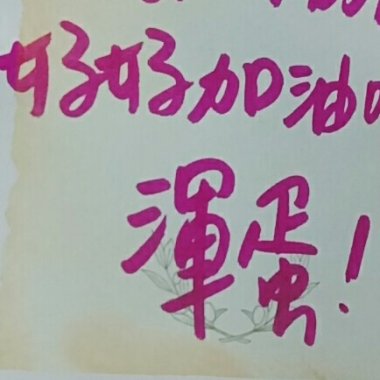 好好加油
渾蛋！